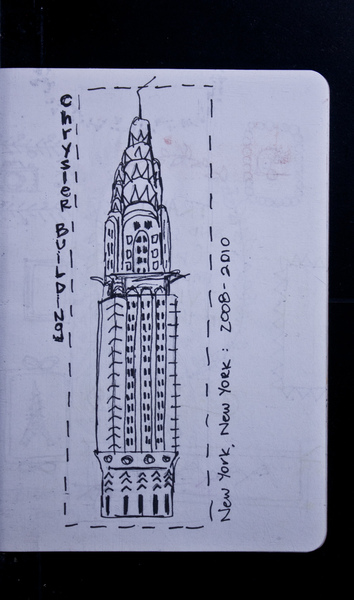 Chrysler Building
New York, New York: 2008-2010